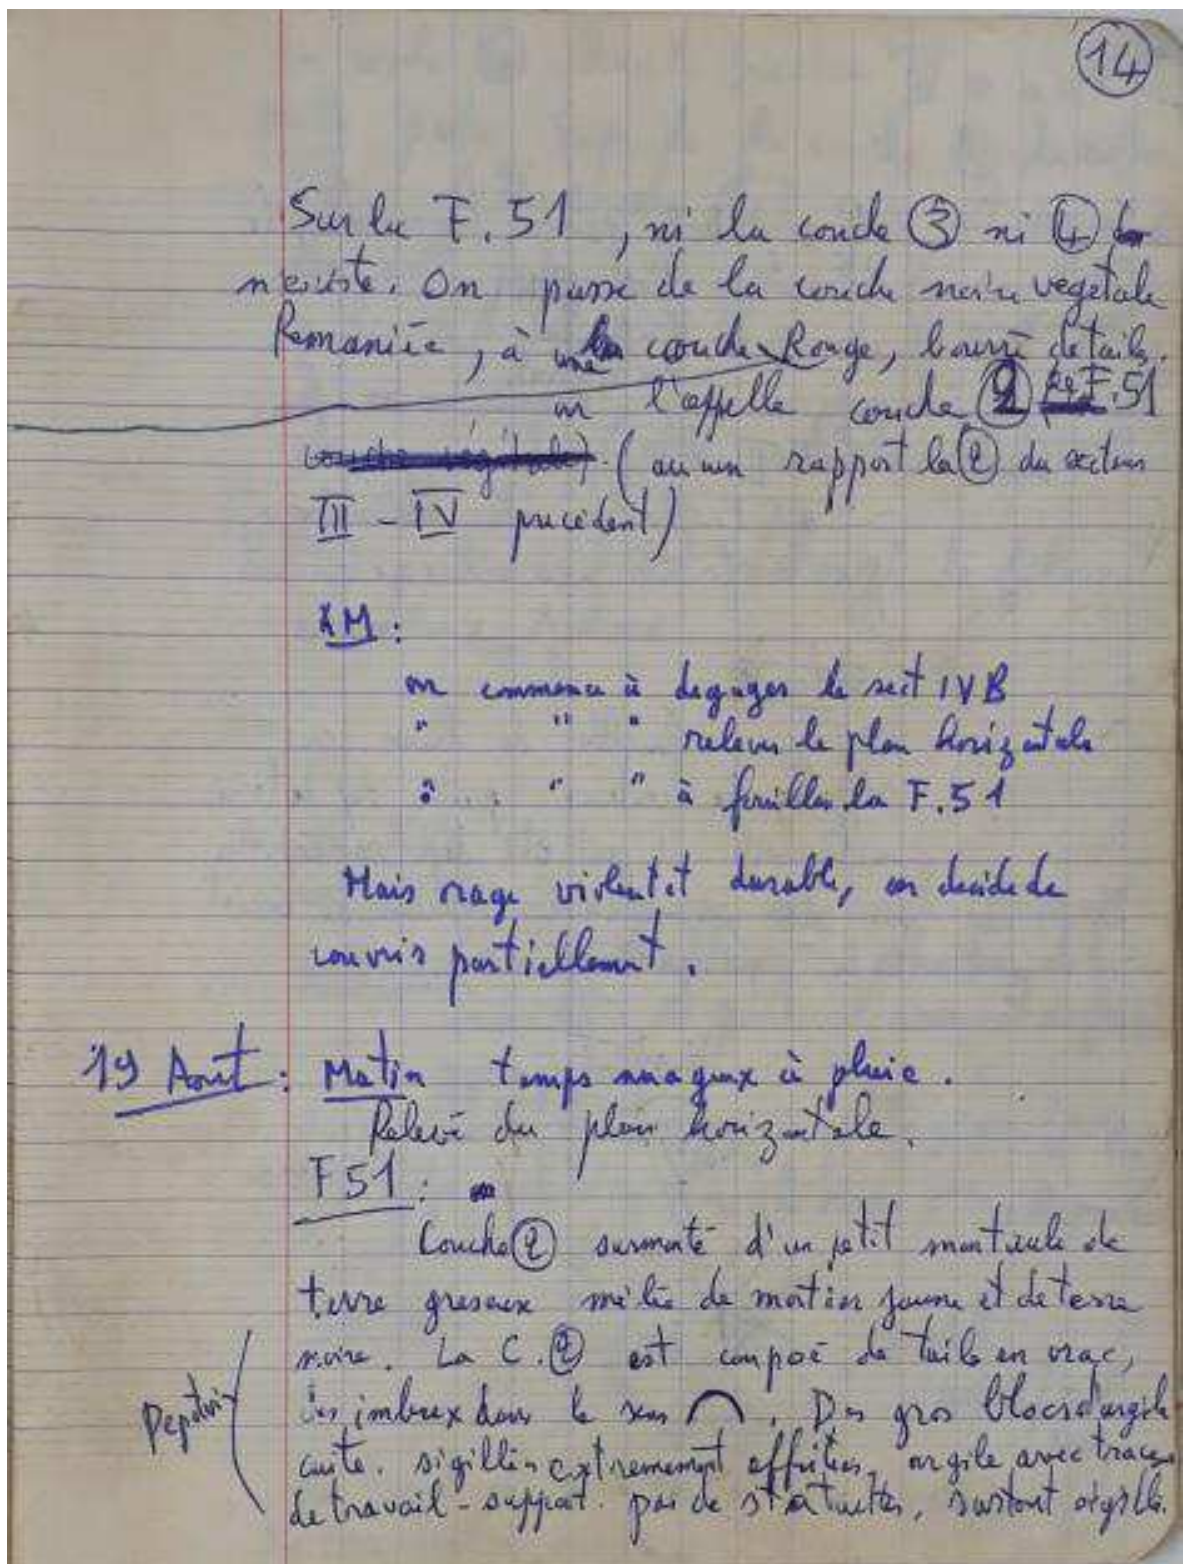 14
Sur la F.51, ni la couche ③ ni ④
n'existe. On passe de la couche noire vegetale
Remaniée, à une couche Rouge, bourré de tuiles.
on l'appelle couche ② F.51
couche végétale). (aucun rapport la ② du secteur
III - IV precedent)
AM :
on commence à degager le sect IVB
" " " relever le plan horizontale
" " " à fouiller la F.51
Mais orage violent et durable, on decide de
couvrir partiellement.
19 Aout : Matin temps nuageux à pluie.
Relevé du plan horizontale.
F51 :
Couche ② surmonté d'un petit monticule de
terre greseux mêlée de mortier jaune et de terre
noire. La C.② est compoé de tuils en vrac,
Depotoir
les imbrex dans le sens ⌒. Des gros blocs d'argile
cuite. sigillée extremement effritées, argile avec traces
de travail - support. pas de statuettes, surtout sigillé.